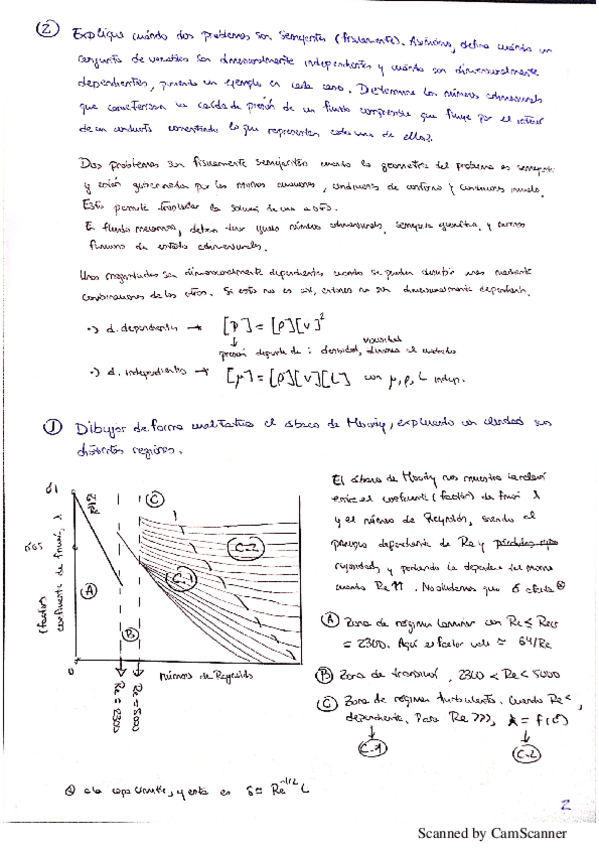 ② Explique cuándo dos problemas son semejantes (físicamente). Asimismo, defina cuándo un
conjunto de variables son dimensionalmente independientes y cuándo son dimensionalmente
dependientes, poniendo un ejemplo en cada caso. Determine los números adimensionales
que caracterizan la caída de presión de un fluido compresible que fluye por el interior
de un conducto comentando lo que representan cada uno de ellos.
Dos problemas son físicamente semejantes cuando la geometría del problema es semejante
y están gobernados por las mismas ecuaciones, condiciones de contorno y condiciones iniciales.
Esto permite trasladar la solución de uno a otro.
En fluidos deben tener iguales números adimensionales, semejanza geométrica, y mismas
funciones de estado adimensionales.
Unas magnitudes son dimensionalmente dependientes cuando se pueden describir unas mediante
combinaciones de las otras. Si esto no es así, entonces no son dimensionalmente dependientes.
•) d. dependientes → [p] = [ρ][v]²
↓ velocidad
presión depende de : densidad,
•) d. independientes → [μ] = [ρ][v][L] con μ, ρ, L indep.
① Dibujar de forma cualitativa el ábaco de Moody, explicando con claridad sus
distintas regiones.
El ábaco de Moody nos muestra la relación
entre el coeficiente (factor) de fricción λ
y el número de Reynolds, siendo el
dependiente de Re y
rugosidad, y perdiendo la dependencia del mismo
cuando Re ↑↑. No olvidemos que δ afecta ⊛
(factor)
coeficiente de fricción, λ
64/Re
A
B
C
C-1
C-2
número de Reynolds
Re = 2300
Re = 5000
Ⓐ Zona de régimen laminar con Re ≤ Recr
= 2300. Aquí el factor vale ≃ 64/Re
Ⓑ Zona de transición, 2300 < Re < 5000
Ⓒ Zona de régimen turbulento. Cuando Re <,
dependiente. Para Re >>>, λ = f(δ)
C-1 C-2
⊛ a la capa límite, y esta es δ ≃ Re^-1/2 L
2
Scanned by CamScanner